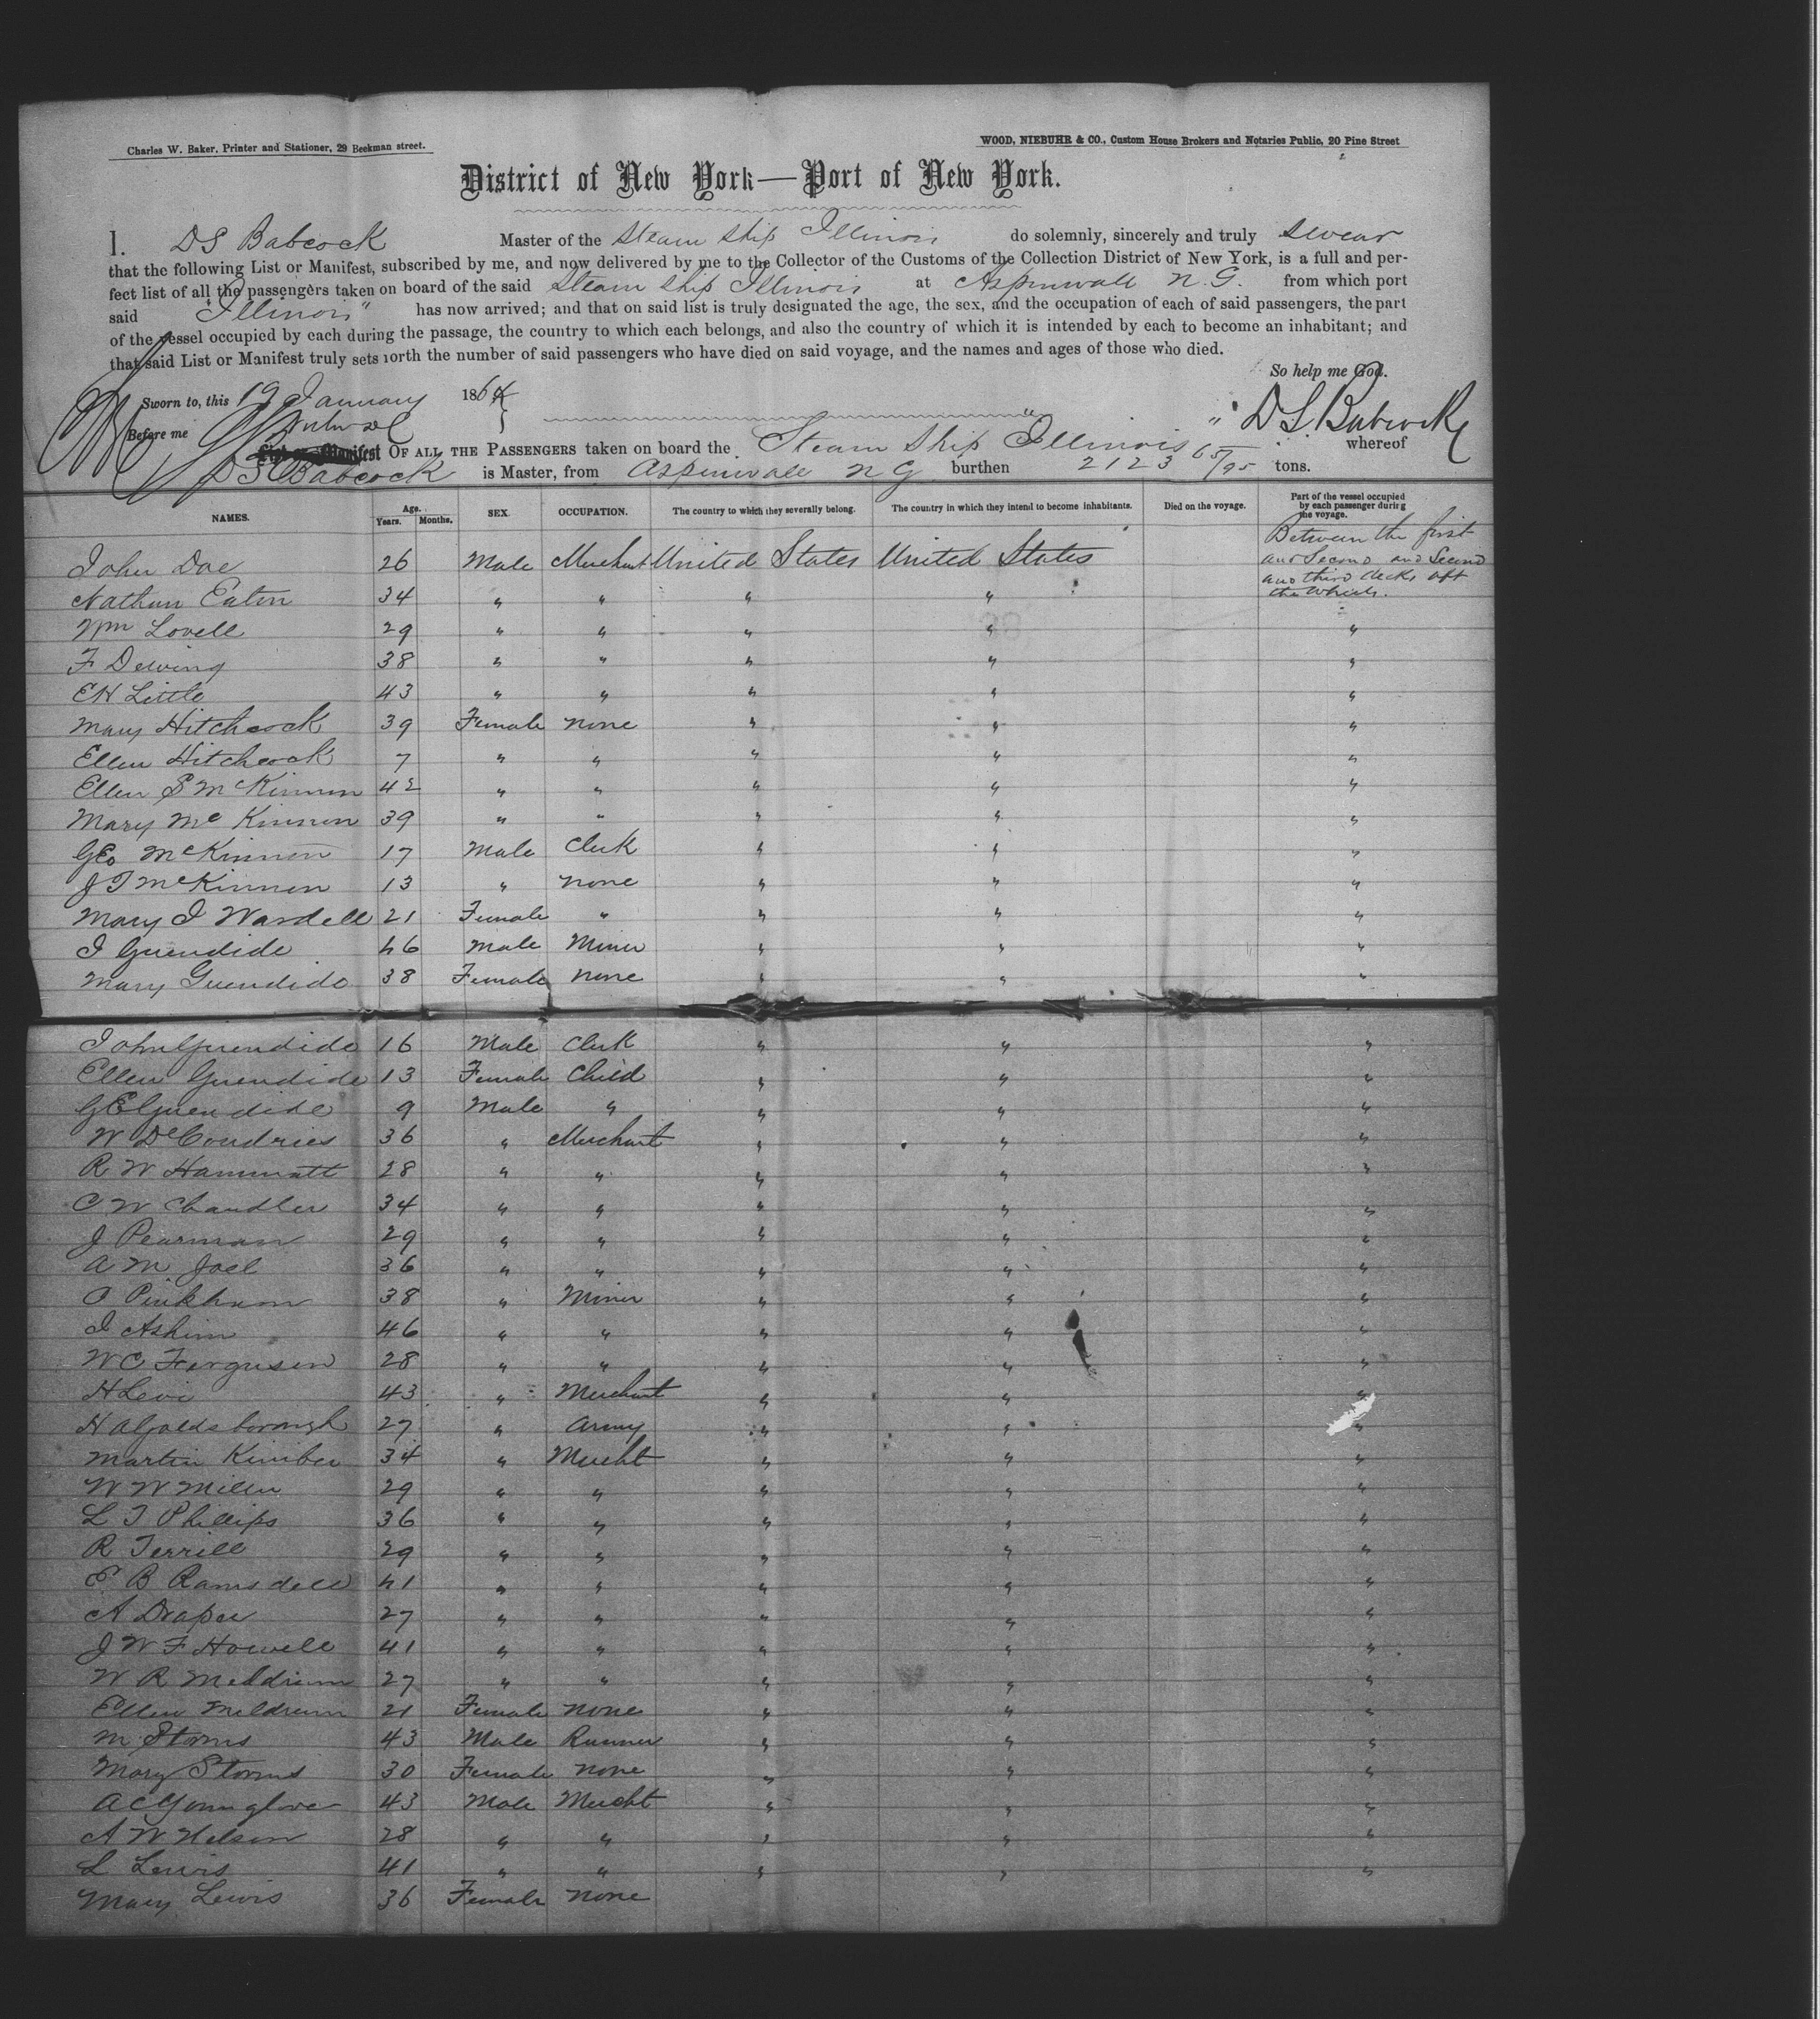 Charles W. Baker, Printer and Stationer, 29 Beekman street.
WOOD, NIEBUHR & CO., Custom House Brokers and Notaries Public, 20 Pine Street
District of New York—Port of New York.
I. DS Babcock Master of the Steam Ship Illinois do solemnly, sincerely and truly swear
that the following List or Manifest, subscribed by me, and now delivered by me to the Collector of the Customs of the Collection District of New York, is a full and per-
fect list of all the passengers taken on board of the said Steam Ship Illinois at Aspinwall N.G. from which port
said "Illinois" has now arrived; and that on said list is truly designated the age, the sex, and the occupation of each of said passengers, the part
of the vessel occupied by each during the passage, the country to which each belongs, and also the country of which it is intended by each to become an inhabitant; and
that said List or Manifest truly sets forth the number of said passengers who have died on said voyage, and the names and ages of those who died.
So help me God.
Sworn to, this 19 January 186
D S Babcock
Before me
List or Manifest OF ALL THE PASSENGERS taken on board the Steam Ship Illinois whereof
D S Babcock is Master, from Aspinwall N G burthen 2123 65/95 tons.
NAMES. Age. Years. Months. SEX. OCCUPATION. The country to which they severally belong. The country in which they intend to become inhabitants. Died on the voyage. Part of the vessel occupied by each passenger during the voyage.
John Doe 26 Male Merchant United States United States Between the first and Second and Second and third decks aft the wheels.
Nathan Eaton 34 " " " "
Wm Lovell 29 " " " " "
F Dewing 38 " " " " "
EH Little 43 " " " " "
Mary Hitchcock 39 Female none " " "
Ellen Hitchcock 7 " " " " "
Ellen S McKinnon 42 " " " " "
Mary Mc Kinnon 39 " " " " "
Geo McKinnon 17 Male Clerk " " "
J T McKinnon 13 " none " " "
Mary J Wardell 21 Female " " " "
I Guendide 46 Male Miner " " "
Mary Guendide 38 Female none " " "
John Guendide 16 Male Clerk " " "
Ellen Guendide 13 Female Child " " "
G E Guendide 9 Male " " " "
W DeCoudries 36 " Merchant " " "
R W Hammatt 28 " " " " "
C W Chandler 34 " " " " "
J Pearman 29 " " " " "
A M Joel 36 " " " " "
O Pinkham 38 " Miner " " "
I Ashim 46 " " " " "
W C Ferguson 28 " " " " "
H Levi 43 " Merchant " " "
H A Goldsborough 27 " Army " " "
Martin Kimber 34 " Mercht " " "
W W Miller 29 " " " " "
L T Phillips 36 " " " " "
R Terrill 29 " " " " "
E B Ramsdell 41 " " " " "
A Draper 27 " " " " "
J W F Howell 41 " " " " "
W R Meldrum 27 " " " " "
Ellen Meldrum 21 Female none " " "
M Storms 43 Male Runner " " "
Mary Storms 30 Female none " " "
A C Younglove 43 Male Mercht " " "
A W Nelson 28 " " " " "
L Lewis 41 " " " " "
Mary Lewis 36 Female none